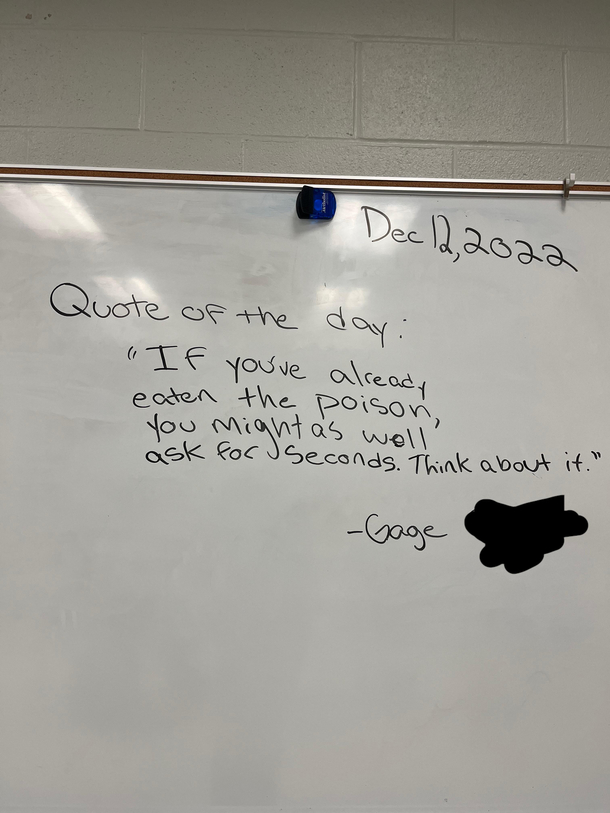 Dec 12, 2022
Quote of the day:
"If you've already
eaten the poison,
you might as well
ask for seconds. Think about it."
-Gage